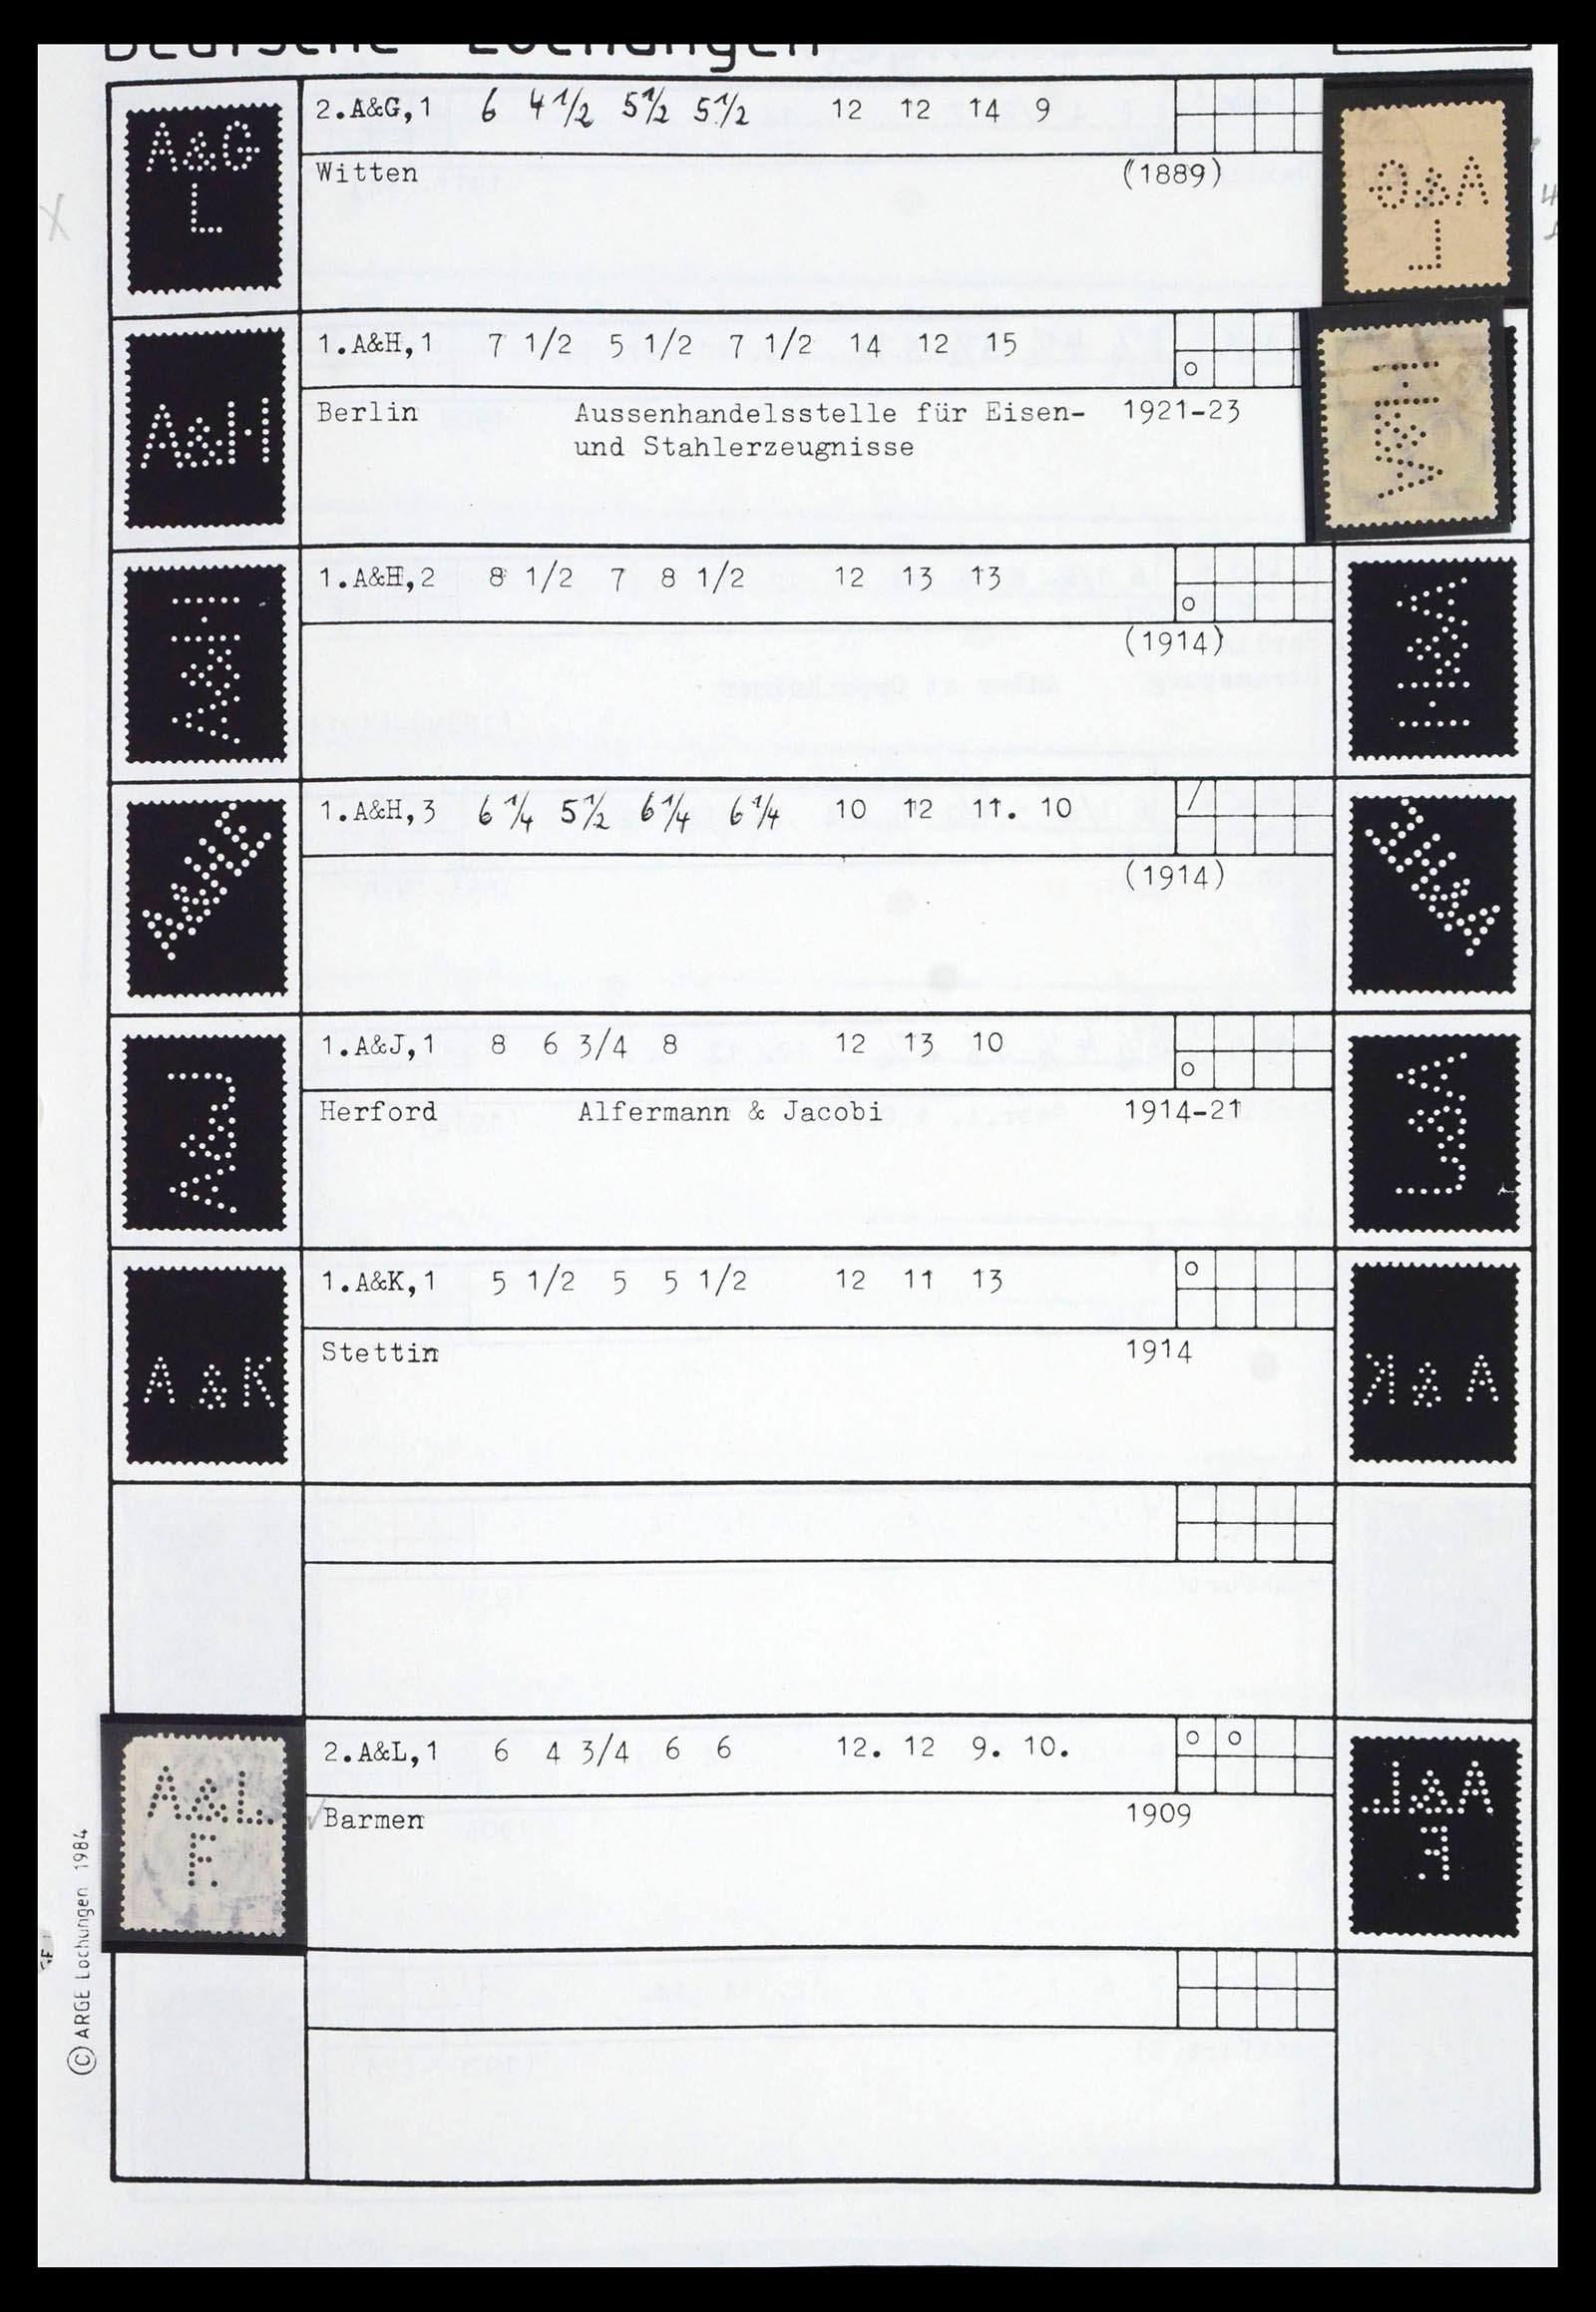 Deutsche Lochungen
A&G
L
2.A&G,1 6 4 1/2 5 1/2 5 1/2 12 12 14 9
Witten (1889)
A&G
L
A&H
1.A&H,1 7 1/2 5 1/2 7 1/2 14 12 15
o
Berlin Aussenhandelsstelle für Eisen- 1921-23
und Stahlerzeugnisse
A&H
A&H
1.A&H,2 8 1/2 7 8 1/2 12 13 13
o
(1914)
A&H
A&HE
1.A&H,3 6 1/4 5 1/2 6 1/4 6 1/4 10 12 11. 10
/
(1914)
A&HE
A&J
1.A&J,1 8 6 3/4 8 12 13 10
o
Herford Alfermann & Jacobi 1914-21
A&J
A&K
1.A&K,1 5 1/2 5 5 1/2 12 11 13
o
Stettin 1914
A&K
A&L.
F.
2.A&L,1 6 4 3/4 6 6 12. 12 9. 10.
o o
Barmen 1909
A&L.
F.
© ARGE Lochungen 1984